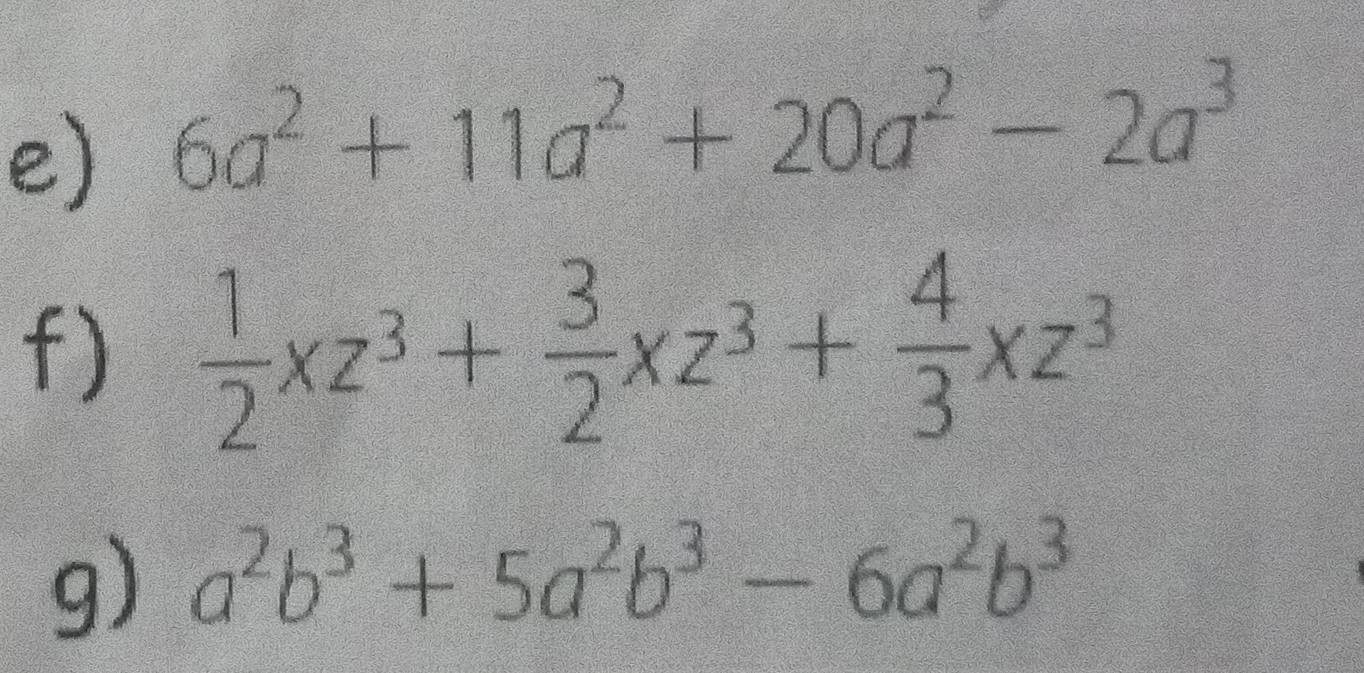 e) 6a² + 11a² + 20a² − 2a³
f) 1/2 xz³ + 3/2 xz³ + 4/3 xz³
g) a²b³ + 5a²b³ − 6a²b³